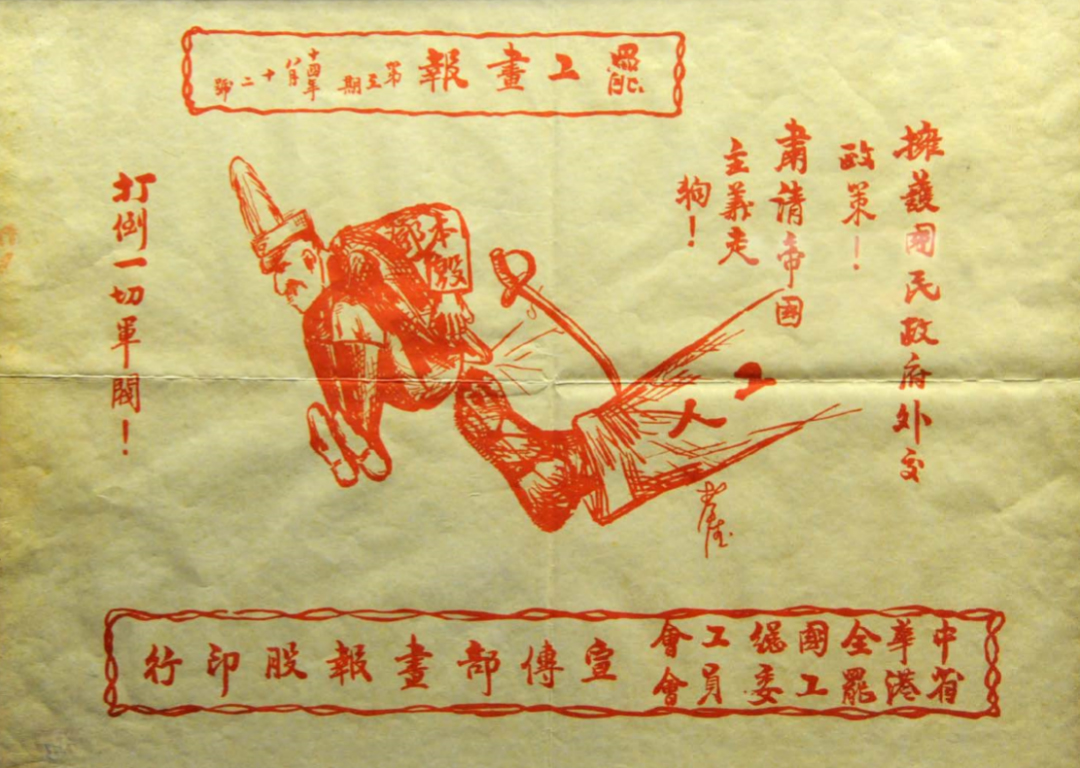 罷工畫報
第五期
十四年八月十二號
擁護國民政府外交
政策！
肅清帝國
主義走
狗！
打倒一切軍閥！
本殷
鄧
工人
中華全國總工會
省港罷工委員會
宣傳部畫報股印行